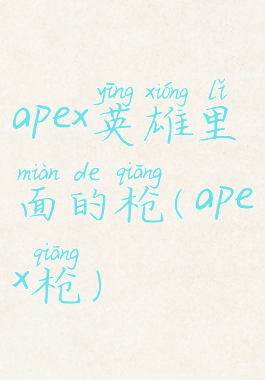 yīng xióng lǐ
apex英雄里
miàn de qiāng
面的枪(ape
qiāng
x枪)